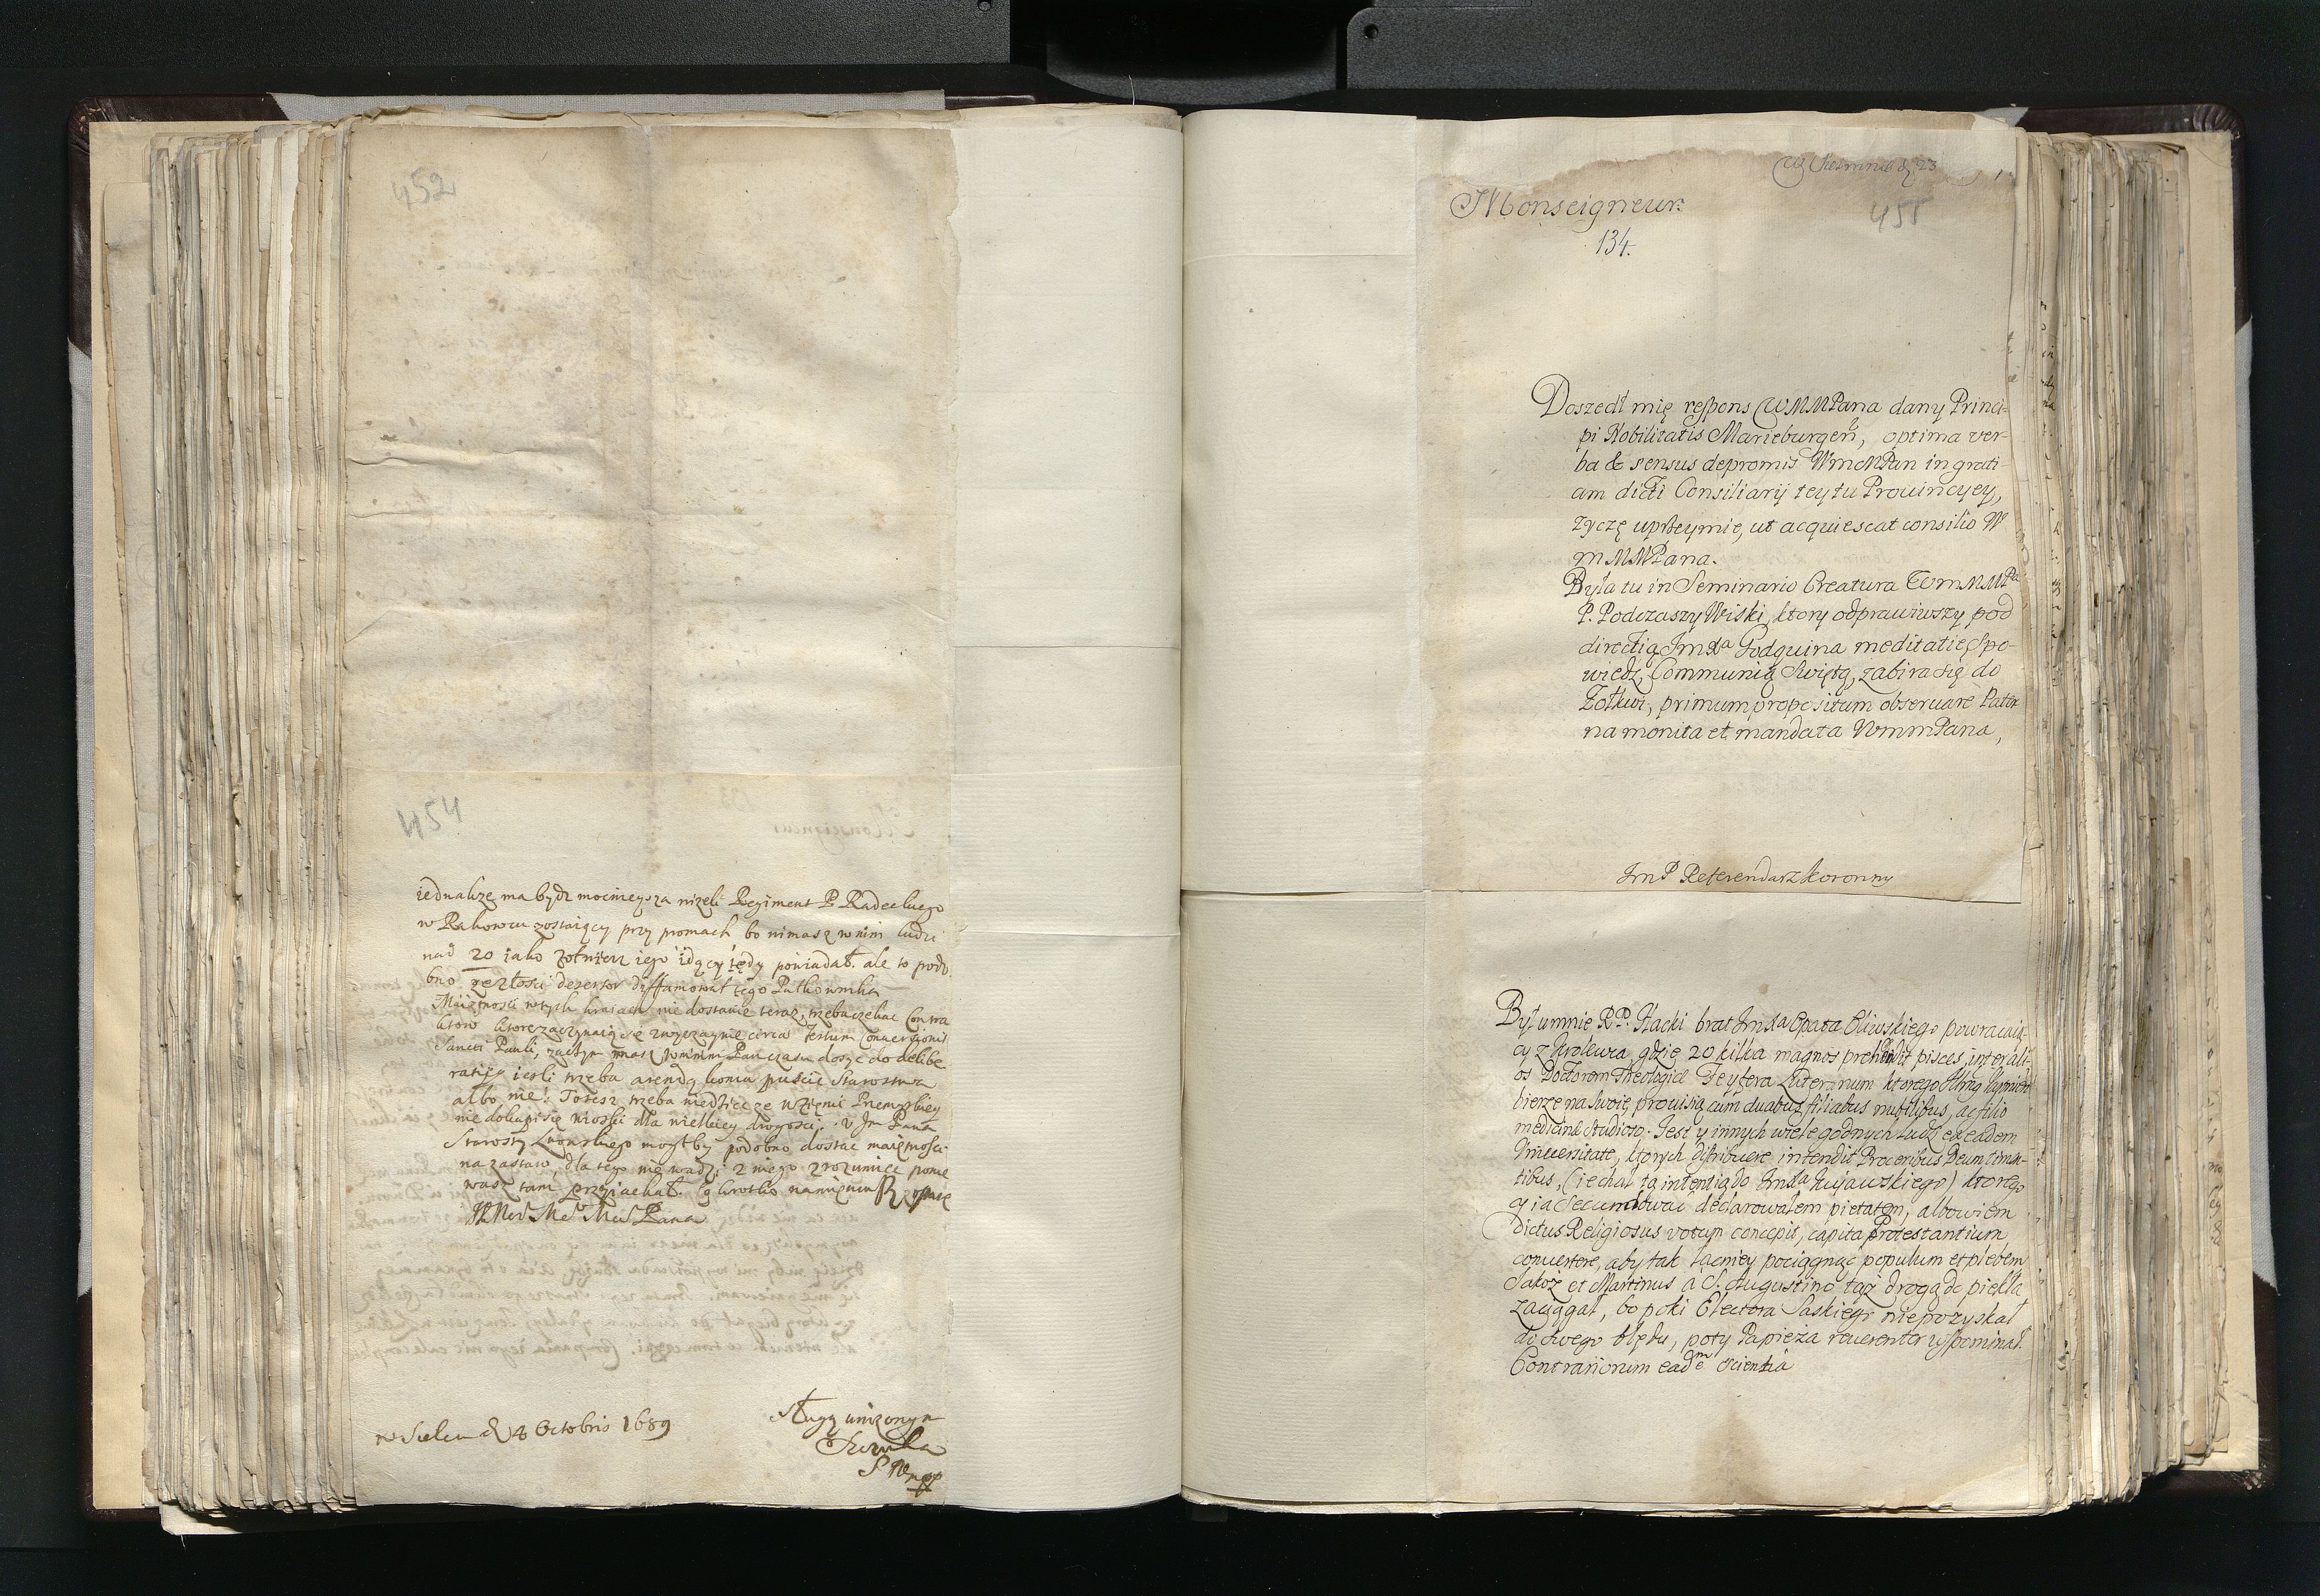 452
454
iednakze ma bydz mocnieysza nizeli Regiment P Radeckiego
w Rakowcu zostaiący przy promach bo nimasz w nim ludzi
nad 20 iako zołnierz iego idący tędy poniadał. ale to podo
bno zezłosci dezertor diffamował tego Pułkownika
Maiętnosci w tych kraiach nie dostanie teraz, trzeba czekac Contra
ktow ktore zaczynaią się zwyczaynie circa festum Conuersionis
Sancti Pauli, zaczym masz Pan czasu dosyc do delibe
ratiey iesli trzeba arendą komu puscic Starostwa
albo nie: Totesz trzeba wiedziec ze w Ziemi Przemyskiey
nie dokupi się wioski dla wielkiey drogosci. U Jm Pana
Starosty Lwowskiego mogł by podobno dostac maiętnosci
na zastaw, dla tego nie wadzi z niego zrozumiec ponie
wasz tam przyiachał. Co krotko namieniwszy
Pana
Sługą unizonym
w Sielcu d 8 Octobris 1689
455
Monseigneur
134.
Doszedł mię respons WMMPana dany Princi-
pi Nobilitatis Marieburgen, optima ver-
ba & sensus depromis WmMPan in grati-
am dicti Consiliarij teytu Prouincyey,
zyczę uprzeymie, ut acquiescat consilio W
m MMPana.
Była tu in Seminario Creatura WmMMPa
P. Podczaszy Wiski, ktory odprawiwszy pod
directią Jmxa Godquina meditatię, Spo-
wiedz, Communią Swiętą, zabira się do
Zołkwi, primum propositum obseruare Pater
na monita et mandata WmmPana,
JmP Referendarz Koronny
Był u mnie RP. Hacki brat Jmxa Opata Oliwskiego powracaią
cy z Krolewca, gdzie 20 kilka magnos prehendit pisces, inter ali
os Doctorem Theologiæ Feyfera Luteranum ktorego
bierze na swoię prouisią cum duabus filiabus nubilibus, ac filio
medicinæ studioso. Jest y innych wiele godnych ludzi ex eadem
Uniuersitate, ktorych distribuere intendit Proceribus Deum timen-
tibus, (iechał tą intentią do Jmxa Kuiawskiego) ktorego
y ia secundowac declarowałem pietatem, albowiem
dictus Religiosus votum concepit, capita Protestantium
conuertere, aby tak łacniey pociągnąc populum et plebem
Jakoż et Martinus a S. Augustino tąż drogą do piekła
zaciągał, bo poki Electora Saskiego niepozyskał
do swego błędu, poty Papieża reuerenter wspominał.
Contrariorum eadem scientia